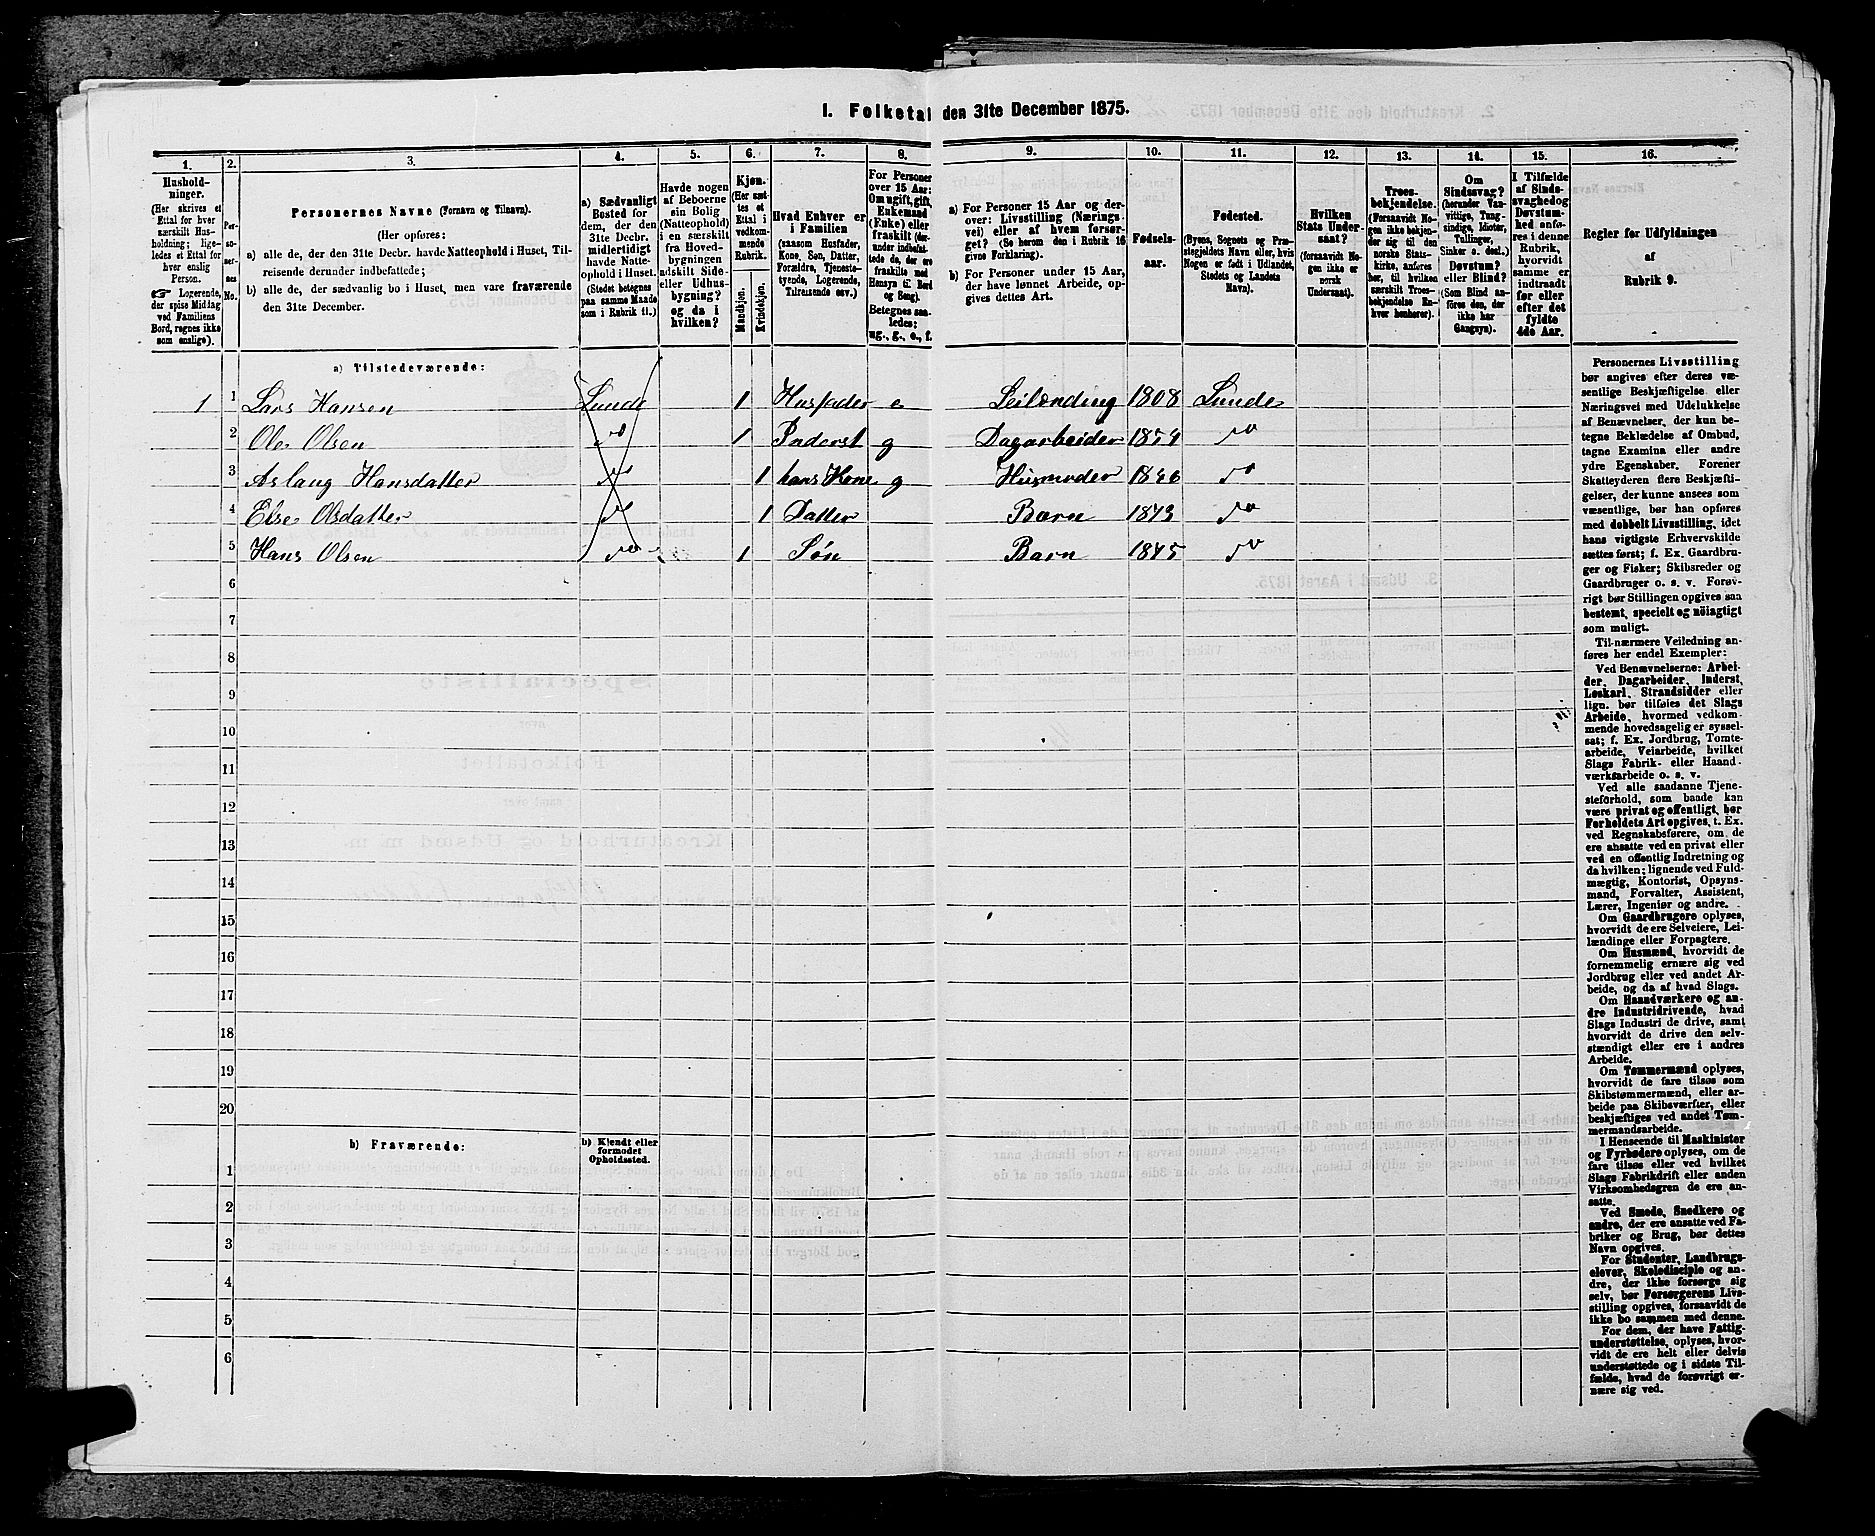 I. Folketal den 31te December 1875.
1. 2. 3. 4. 5. 6. 7. 8. 9. 10. 11. 12. 13. 14. 15. 16.
Hushold-
ninger.
(Her skrives et
Ettal for hver
særskilt Hus-
holdning; lige-
ledes et Ettal for
hver enslig
Person.
☞ Logerende,
der spise Middag
ved Familiens
Bord, regnes ikke
som enslige).
Per-
so-
ner-
nes
No.
Personernes Navne (Fornavn og Tilnavn).
(Her opføres:
a) alle de, der den 31te Decbr. havde Natteophold i Huset, Til-
reisende derunder indbefattede;
b) alle de, der sædvanlig bo i Huset, men vare fraværende
den 31te December.
a) Sædvanligt
Bosted for
dem, der den
31te Decbr.
midlertidigt
havde Natte-
ophold i Huset.
(Stedet betegnes
paa samme Maade
som i Rubrik 11.)
Havde nogen
af Beboerne
sin Bolig
(Natteophold)
i en særskilt
fra Hoved-
bygningen
adskilt Side-
eller Udhus-
bygning?
og da i
hvilken?
Kjøn.
(Her sæt-
tes et
Ettal i
vedkom-
mende
Rubrik.
Mandkjøn.
Kvindekjøn.
Hvad Enhver er
i Familien
(saasom Husfader,
Kone, Søn, Datter,
Forældre, Tjeneste-
tyende, Logerende,
Tilreisende osv.)
For Personer
over 15 Aar:
Om ugift, gift,
Enkemand
(Enke) eller
fraskilt (der-
under indbefat-
tede de, der ere
fraskilte med
Hensyn til Bord
og Seng).
Betegnes saa-
ledes:
ug., g., e., f.
a) For Personer 15 Aar og der-
over: Livsstilling (Nærings-
vei) eller af hvem forsør-
get? (Se herom den i Rubrik 16
givne Forklaring).
b) For Personer under 15 Aar,
der have lønnet Arbeide, op-
gives dettes Art.
Fødsels-
aar.
Fødested.
(Byens, Sognets og Præ-
stegjeldets Navn eller, hvis
Nogen er født i Udlandet,
Stedets og Landets
Navn).
Hvilken
Stats Under-
saat?
(forsaavidt No-
gen ikke er
norsk
Undersaat).
Troes-
bekjendelse.
(Forsaavidt No-
gen ikke bekjen-
der sig til den
norske Stats-
kirke, anføres
her, til hvilken
særskilt Troes-
bekjendelse En-
hver henhører).
Om
Sindssvag?
(herunder Van-
vittige, Tung-
sindige, Idioter,
Tullinger,
Sinker o. desl.)
Døvstum?
eller Blind?
(Som Blind an-
føres den, der
ikke har
Gangsyn).
I Tilfælde
af Sinds-
svaghed og
Døvstum-
hed anfø-
res i denne
Rubrik,
hvorvidt
samme er
indtraadt
før eller
efter det
fyldte
4de Aar.
Regler for Udfyldningen
af
Rubrik 9.
a) Tilstedeværende:
1 1 Lars Hansen Lunde 1 Husfader e Leilænding 1808 Lunde
2 Ole Olsen do 1 Inderst g Dagarbeider do
3 Aslaug Hansdatter do 1 hans Kone g Husmoder 1846 do
4 Else Olsdatter do 1 Datter Barn 1873 do
5 Hans Olsen do 1 Søn Barn 1875 do
6
7
8
9
10
11
12
13
14
15
16
17
18
19
20
b) Fraværende: b) Kjendt eller
formodet
Opholdssted.
1
2
3
4
5
6
Personernes Livsstilling
bør angives efter deres væ-
sentlige Beskjæftigelse eller
Næringsvei med Udelukkelse
af Benævnelser, der kun be-
tegne Beklædelse af Ombud,
tagne Examina eller andre
ydre Egenskaber. Forener
Skatteyderen flere Beskjæfti-
gelser, der kunne ansees som
væsentlige, bør han opføres
med dobbelt Livsstilling, idet
hans vigtigste Erhvervskilde
sættes først; f. Ex. Gaardbru-
ger og Fisker; Skibsreder og
Gaardbruger o. s. v. Forøv-
rigt bør Stillingen opgives saa
bestemt, specielt og nöiagtigt
som muligt.
Til nærmere Veiledning an-
føres her endel Exempler:
Ved Benævnelserne: Arbei-
der, Dagarbeider, Inderst,
Løskarl, Strandsidder eller
lign. bør tilføies det Slags
Arbeide, hvormed vedkom-
mende hovedsagelig er syssel-
sat; f. Ex. Jordbrug, Tomte-
arbeide, Veiarbeide, hvilket
Slags Fabrik- eller Haand-
værksarbeide o. s. v.
Ved alle saadanne Tjene-
steforhold, som baade kan
være privat og offentligt, bør
Forholdets Art opgives, t. Ex.
ved Regnskabsførere, om de
ere ansatte ved en privat eller
ved en offentlig Indretning og
da hvilken; lignende ved Fuld-
mægtig, Kontorist, Opsyns-
mand, Forvalter, Assistent,
Lærer, Ingeniør og andre.
Om Gaardbrugere oplyses,
hvorvidt de ere Selveiere, Lei-
lændinge eller Forpagtere.
Om Husmænd, hvorvidt de
fornemmelig ernære sig ved
Jordbrug eller ved andet Ar-
beide, og da af hvad Slags.
Om Haandværkere og an-
dre Industridrivende, hvad
Slags Industri de drive, samt
hvorvidt de drive den selv-
stændigt eller ere i andres
Arbeide.
Om Tømmermænd oplyses,
hvorvidt de fare tilsøs som
Skibstømmermænd, eller ar-
beide paa Skibsværfter, eller
beskjæftiges ved andet Tøm-
mermandsarbeide.
I Henseende til Maskinister
og Fyrbødere oplyses, om de
fare tilsøs eller ved hvilket
Slags Fabrikdrift eller anden
Virksomhedsgren de ere an-
satte.
Ved Smede, Snedkere og
andre, der ere ansatte ved Fa-
briker og Brug, bør dettes
Navn opgives.
For Studenter, Landbrugs-
elever, Skoledisciple og an-
dre, der ikke forsørge sig
selv, bør Forsørgerens Livs-
stilling opgives, forsaavidt de
ikke bo sammen med denne.
For dem, der have Fattig-
understøttelse, oplyses, hvor-
vidt de ere helt eller delvis
understøttede og i sidste Til-
fælde, hvad de forøvrigt er-
nære sig ved.